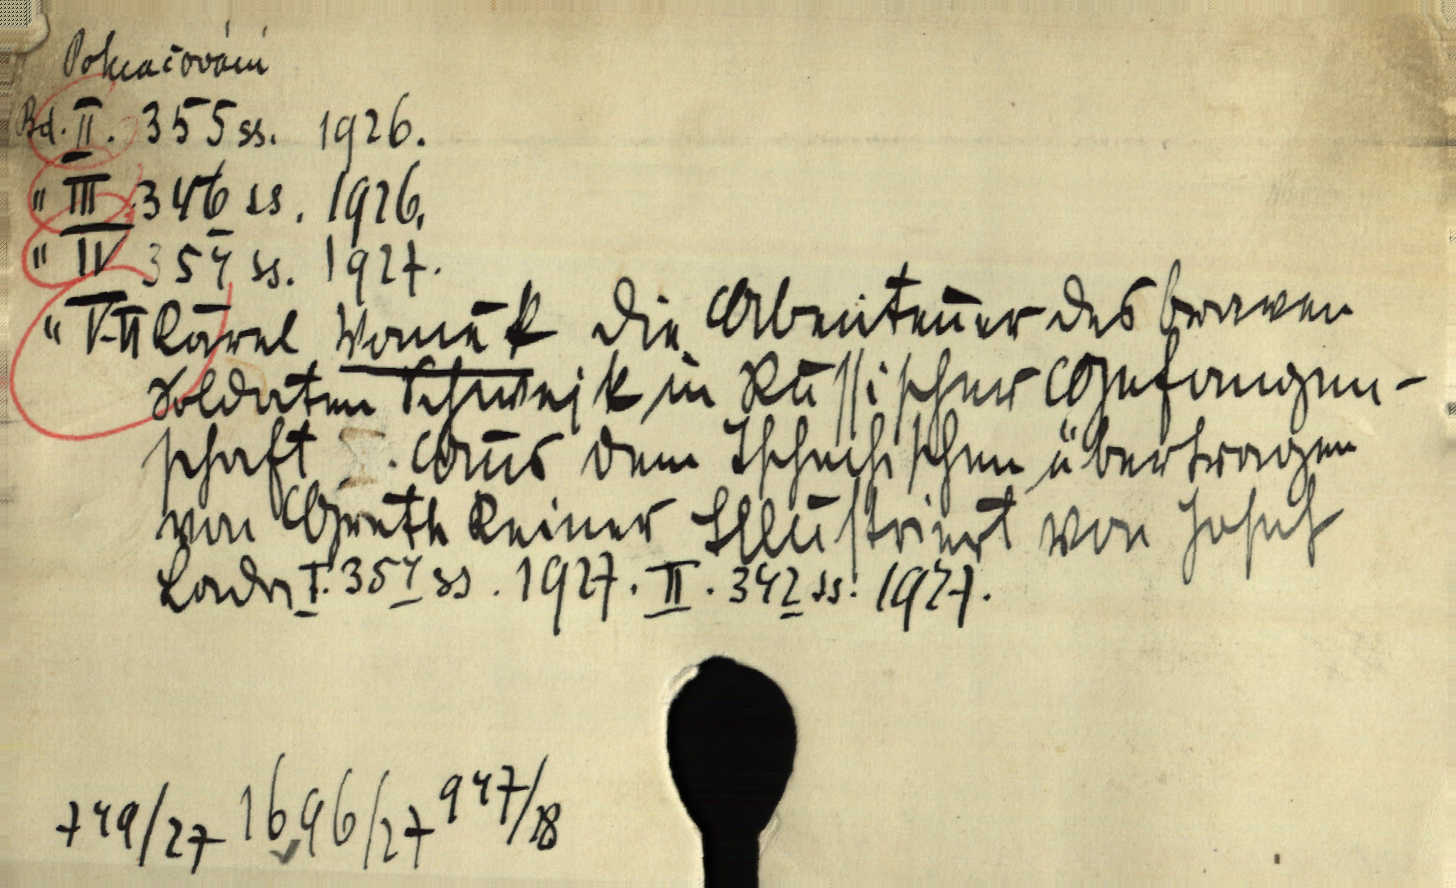 Pokračování
Bd. II. 355 ss. 1926.
" III 346 ss. 1926.
" IV 354 ss. 1927.
" V-VI Karel Vaněk Die Abenteuer des braven
Soldaten Schwejk in Russischer Gefangen-
schaft. Aus dem Tschechischen übertragen
von Greth Reiner Illustriert von Josef
Lada I. 354 ss. 1927. II. 342 ss. 1927.
749/27 1696/27 947/28